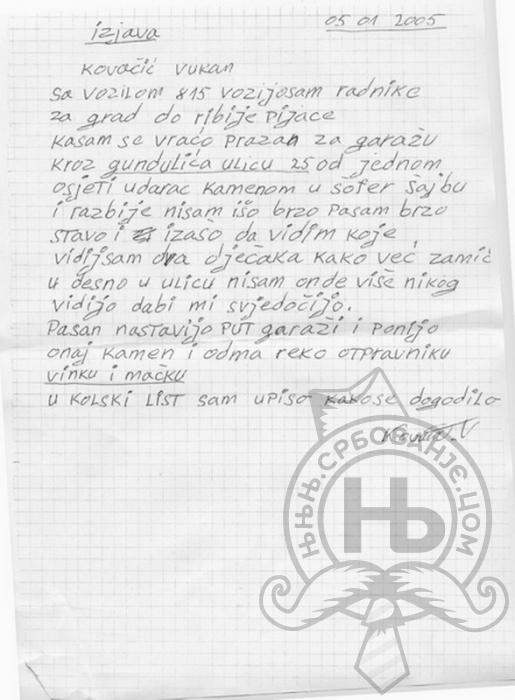 izjava 05 01 2005
Kovačić Vukan
sa vozilom 815 vozijosam radnike
za grad do ribije pijace
kasam se vraćo prazan za garažu
kroz gundulića ulicu 25 od jednom
osjeti udarac kamenom u šofer šajbu
i razbije nisam išo brzo pasam brzo
stavo i izaso da vidim koje
vidijsam dva dječaka kako već zamić
u desno u ulicu nisam onde više nikog
vidijo dabi mi svjedočijo.
Pasan nastavijo PUT garaži i ponijo
onaj kamen i odma reko otpravniku
vinku i mačku
u kolski list sam upiso kakose dogodilo
Њ
њњњ.србовање.цом